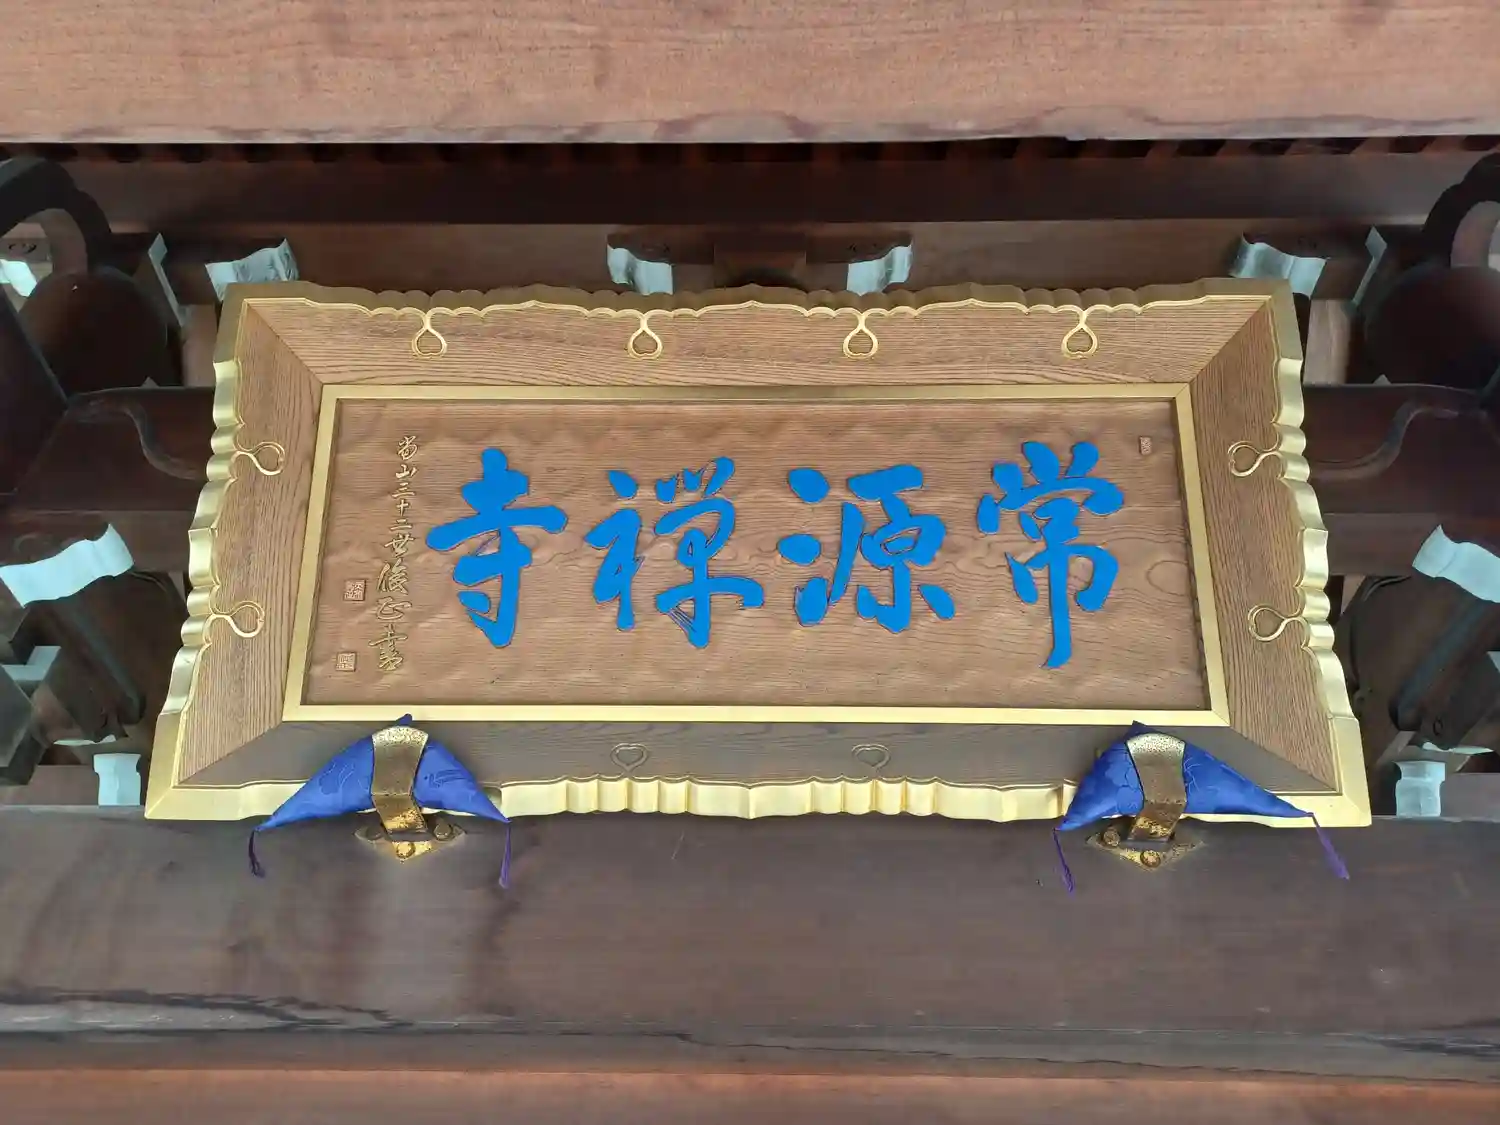 常源禅寺
當山三十二世俊正書